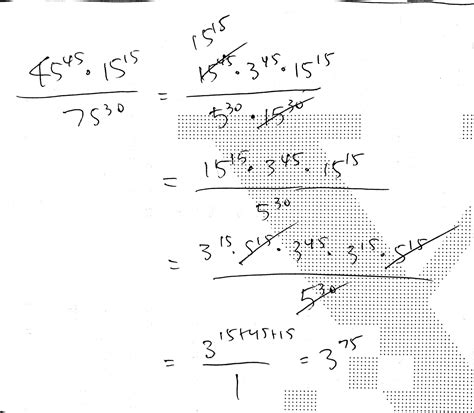 45^45 · 15^15 / 75^30 = 15^15 15^45 · 3^45 · 15^15 / 5^30 · 15^30
= 15^15 · 3^45 · 15^15 / 5^30
= 3^15 · 5^15 · 3^45 · 3^15 · 5^15 / 5^30
= 3^15+45+15 / 1 = 3^75